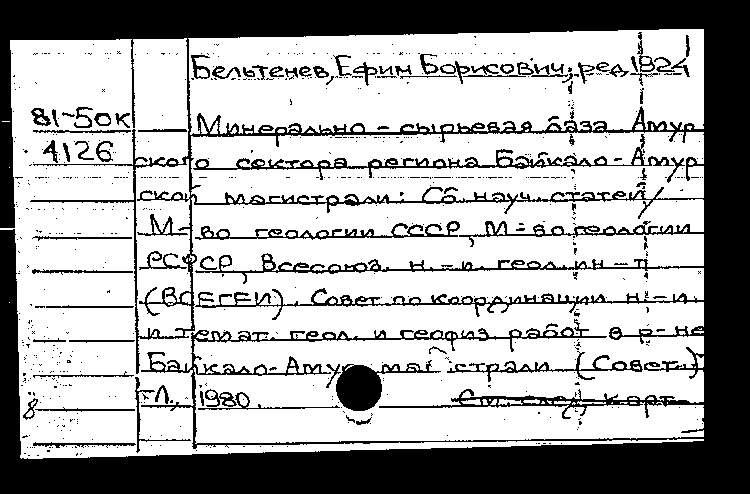 Бельтенев, Ефим Борисович, ред. 1824
81-50к
4126
Минерально-сырьевая база Амур
ского сектора региона Байкало-Амур
ской магистрали: Сб. науч. статей /
М-во геологии СССР, М-во геологии
РСФСР, Всесоюз. н.-и. геол. ин-т
(ВСЕГЕИ), Совет по координации н.-и.
и темат. геол. и геофиз. работ в р-не
Байкало-Амур. магистрали (Совет.)
Л., 1980.
См. след. карт.
8